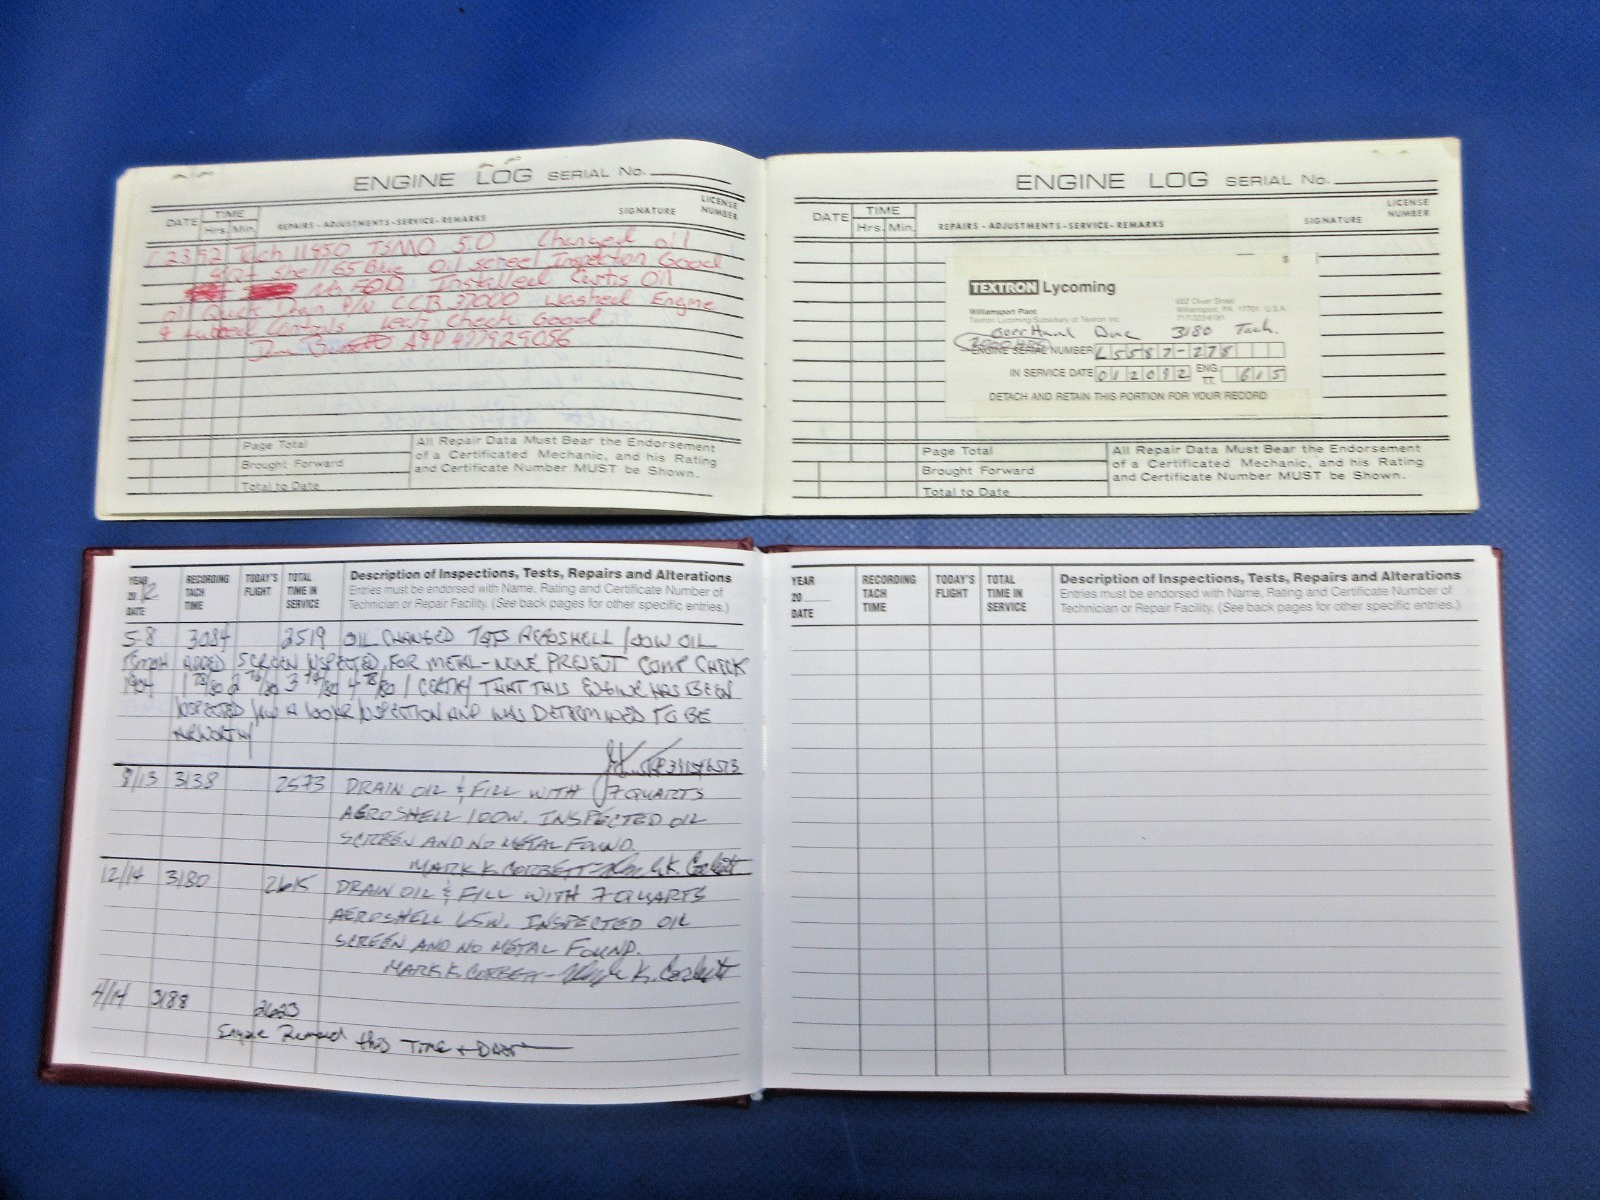 ENGINE LOG SERIAL No.
DATE TIME Hrs. Min. REPAIRS - ADJUSTMENTS - SERVICE - REMARKS SIGNATURE LICENSE NUMBER
Tach TSMO 5.0 Changed oil
Shell 65 Oil screen Inspection Good
No Installed Curtis Oil
Quick Drain P/N CCB 37000 Washed Engine
& Controls Leak Check Good
A+P 477929056
Page Total
Brought Forward
Total to Date
All Repair Data Must Bear the Endorsement
of a Certificated Mechanic, and his Rating
and Certificate Number MUST be Shown.
ENGINE LOG SERIAL No.
DATE TIME Hrs. Min. REPAIRS - ADJUSTMENTS - SERVICE - REMARKS SIGNATURE LICENSE NUMBER
$
TEXTRON Lycoming
Williamsport Plant
652 Oliver Street
Williamsport, PA 17701 U.S.A.
Over Haul Due 3180 Tach.
ENGINE SERIAL NUMBER L5587-278
IN SERVICE DATE 012092 ENG. T.T. 615
DETACH AND RETAIN THIS PORTION FOR YOUR RECORD
Page Total
Brought Forward
Total to Date
All Repair Data Must Bear the Endorsement
of a Certificated Mechanic, and his Rating
and Certificate Number MUST be Shown.
YEAR 2012 DATE
RECORDING TACH TIME
TODAY'S FLIGHT
TOTAL TIME IN SERVICE
Description of Inspections, Tests, Repairs and Alterations
Entries must be endorsed with Name, Rating and Certificate Number of
Technician or Repair Facility. (See back pages for other specific entries.)
5-8 3084 2519 OIL CHANGED 7QTS AEROSHELL 100W OIL
TSMOH ADDED SCREEN INSPECTED FOR METAL-NONE PRESENT COMP CHECK
1904 1 78/80 2 76/80 3 74/80 4 78/80 I CERTIFY THAT THIS ENGINE HAS BEEN
INSPECTED IAW A 100HR INSPECTION AND WAS DETERMINED TO BE
AIRWORTHY
9/13 3138 2573 DRAIN OIL & FILL WITH 7 QUARTS
AEROSHELL 100W. INSPECTED OIL
SCREEN AND NO METAL FOUND.
MARK K. CORBETT - Mark K. Corbett
12/14 3180 2615 DRAIN OIL & FILL WITH 7 QUARTS
AEROSHELL 65W. INSPECTED OIL
SCREEN AND NO METAL FOUND.
MARK K. CORBETT - Mark K. Corbett
4/14 3188 2623
Engine Removed this Time + Date
YEAR 20 DATE
RECORDING TACH TIME
TODAY'S FLIGHT
TOTAL TIME IN SERVICE
Description of Inspections, Tests, Repairs and Alterations
Entries must be endorsed with Name, Rating and Certificate Number of
Technician or Repair Facility. (See back pages for other specific entries.)